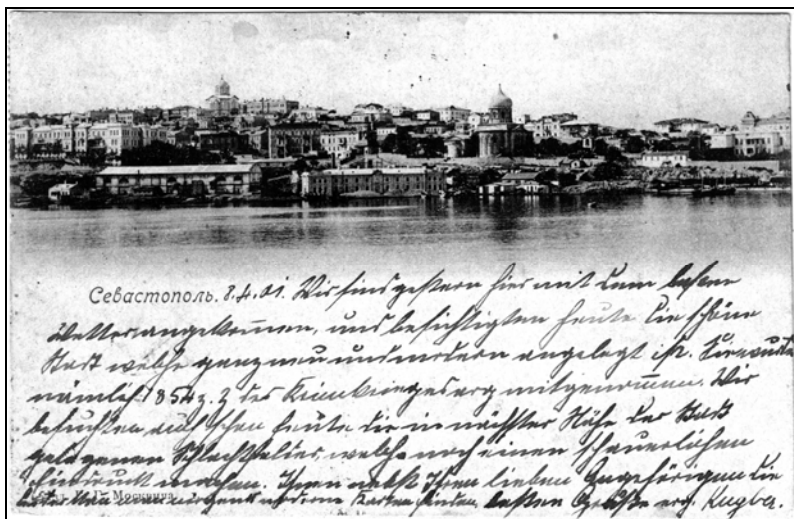 Севастополь. 8.4.01. Wir sind gestern hier mit dem besten
Wetter angekommen, und besichtigten heute die schöne
Stadt welche ganz neu und modern angelegt ist. Sie wurde
nämlich 1854 z. Z. des Krimkrieges arg mitgenommen. Wir
besuchten auch schon heute die in nächster Nähe der Stadt
gelegenen Schlachtfelder, welche noch einen schauerlichen
Eindruck machen. Ihnen nebst Ihren lieben Angehörigen die
Г. Москвича. moderne Karten finden, besten Grüße